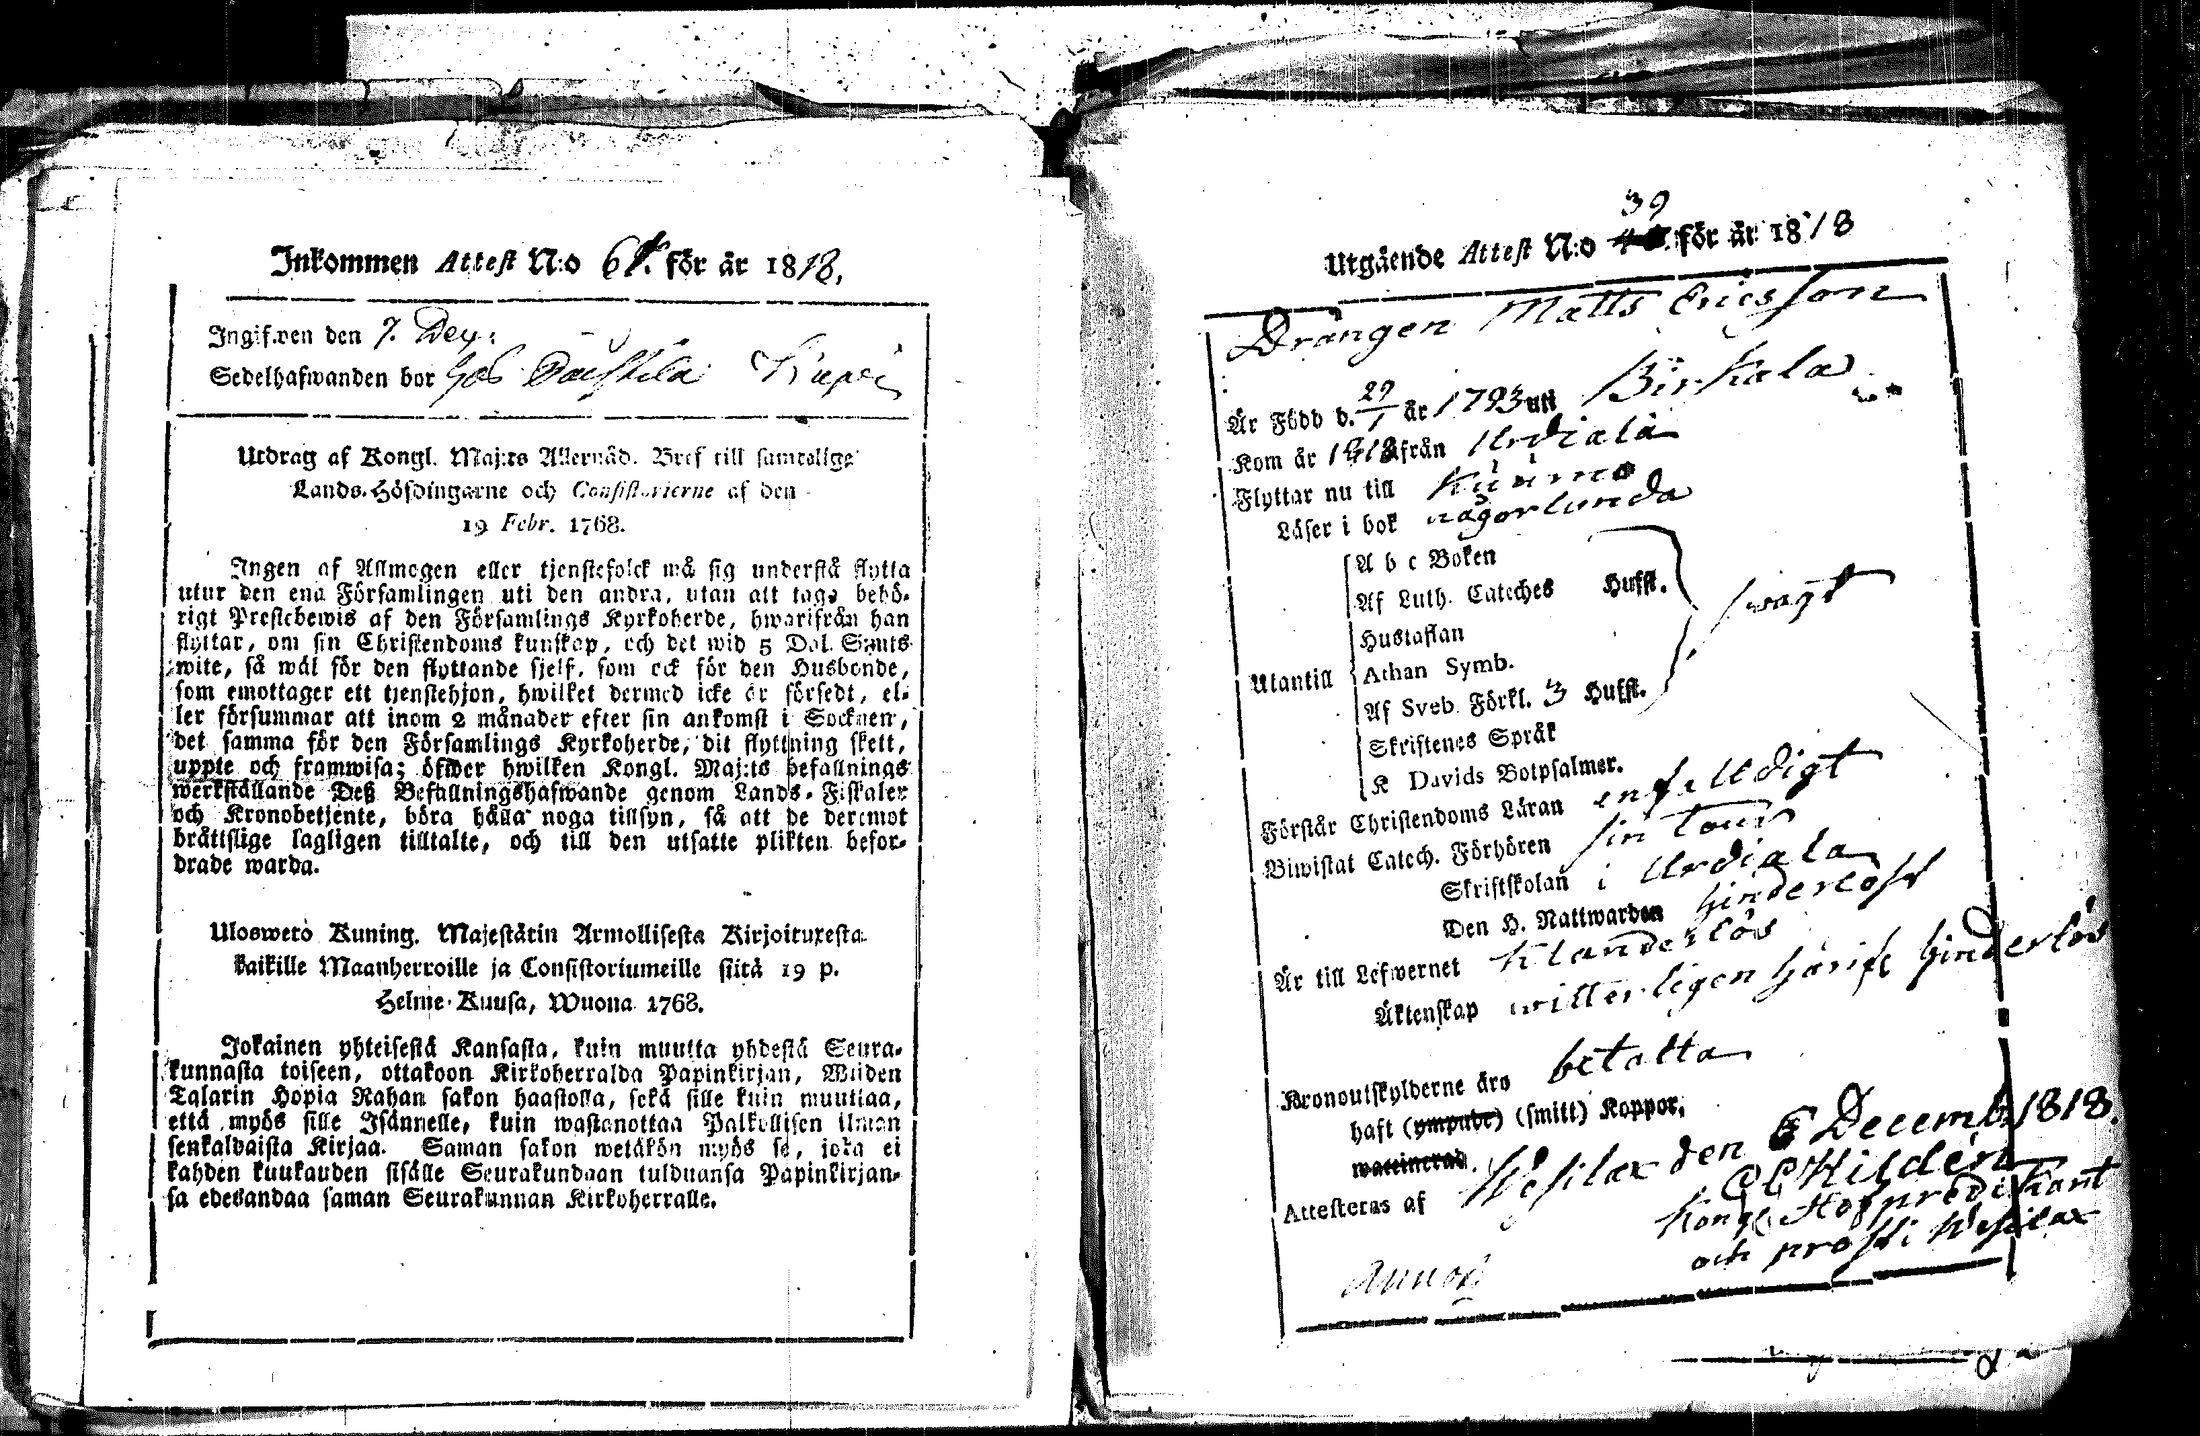 Inkommen Attest N:o 61. för år 1818.
Ingifwen den 7. Dec:
Sedelhafwanden bor hos
Utdrag af Kongl. Maj:ts Allernåd. Bref till samtelige
Lands-Höfdingarne och Consistorierne af den
19 Febr. 1768.
Ingen af Allmogen eller tjenstefolck må sig understå flytta
utur den ena Församlingen uti den andra, utan att taga behö-
rigt Prestebewis af den Församlings Kyrkoherde, hwarifrån han
flyttar, om sin Christendoms kunskap, och det wid 5 Dal. S:mts
wite, så wäl för den flyttande sjelf, som ock för den Husbonde,
som emottager ett tjenstehjon, hwilket dermed icke är försedt, el-
ler försummar att inom 2 månader efter sin ankomst i Socknen,
det samma för den Församlings Kyrkoherde, dit flyttning skett,
uppte och framwisa; öfwer hwilken Kongl. Maj:ts befallnings
werkställande Deß Befallningshafwande genom Lands-Fiskaler
och Kronobetjente, böra hålla noga tillsyn, så att de deremot
bråttslige lagligen tilltalte, och till den utsatte plikten befor-
drade warda.
Uloswetö Kuning. Majestätin Armollisesta Kirjoituxesta
kaikille Maanherroille ja Consistoriumeille siitä 19 p.
Helme-Kuusa, Wuona 1768.
Jokainen yhteisestä Kansasta, kuin muutta yhdestä Seura-
kunnasta toiseen, ottakoon Kirkoherralda Papinkirjan, Wiiden
Talarin Hopia Rahan sakon haastolla, sekä sille kuin muuttaa,
että myös sille Isännelle, kuin wastanottaa Palkollisen ilman
senkaldaista Kirjaa. Saman sakon wetäkön myös se, joka ei
kahden kuukauden sisälle Seurakundaan tulduansa Papinkirjan-
sa edesandaa saman Seurakunnan Kirkoherralle.
Utgående Attest N:o 39 för år 1818
Drängen Matts Ericsson
Är Född d. 29/1 år 1793 uti Birkala
Kom år 1818 ifrån Urdiala
Flyttar nu till
Läser i bok någorlunda
A b c Boken
Af Luth. Cateches Hufst.
Hustaflan
Utantill Athan Symb. swagt
Af Sveb. Förkl. 3 Hufst.
Skriftenes Språk
K Davids Botpsalmer.
Förstår Christendoms Läran enfalldigt
Biwistat Catech. Förhören sin tour
Skriftskolan i Urdiala
Den H. Nattwarden hinderlöst
Är till Lefwernet klanderlös
Äktenskap witterligen härifr hinderlös
Kronoutskylderne äro betalta
haft (ympade) (smitt) Koppor.
waccinerad.
Attesteras af Wesilax den 6 Decemb. 1818.
C C Hildén
Kongl. Hofpredikant
och prost i Wesilax